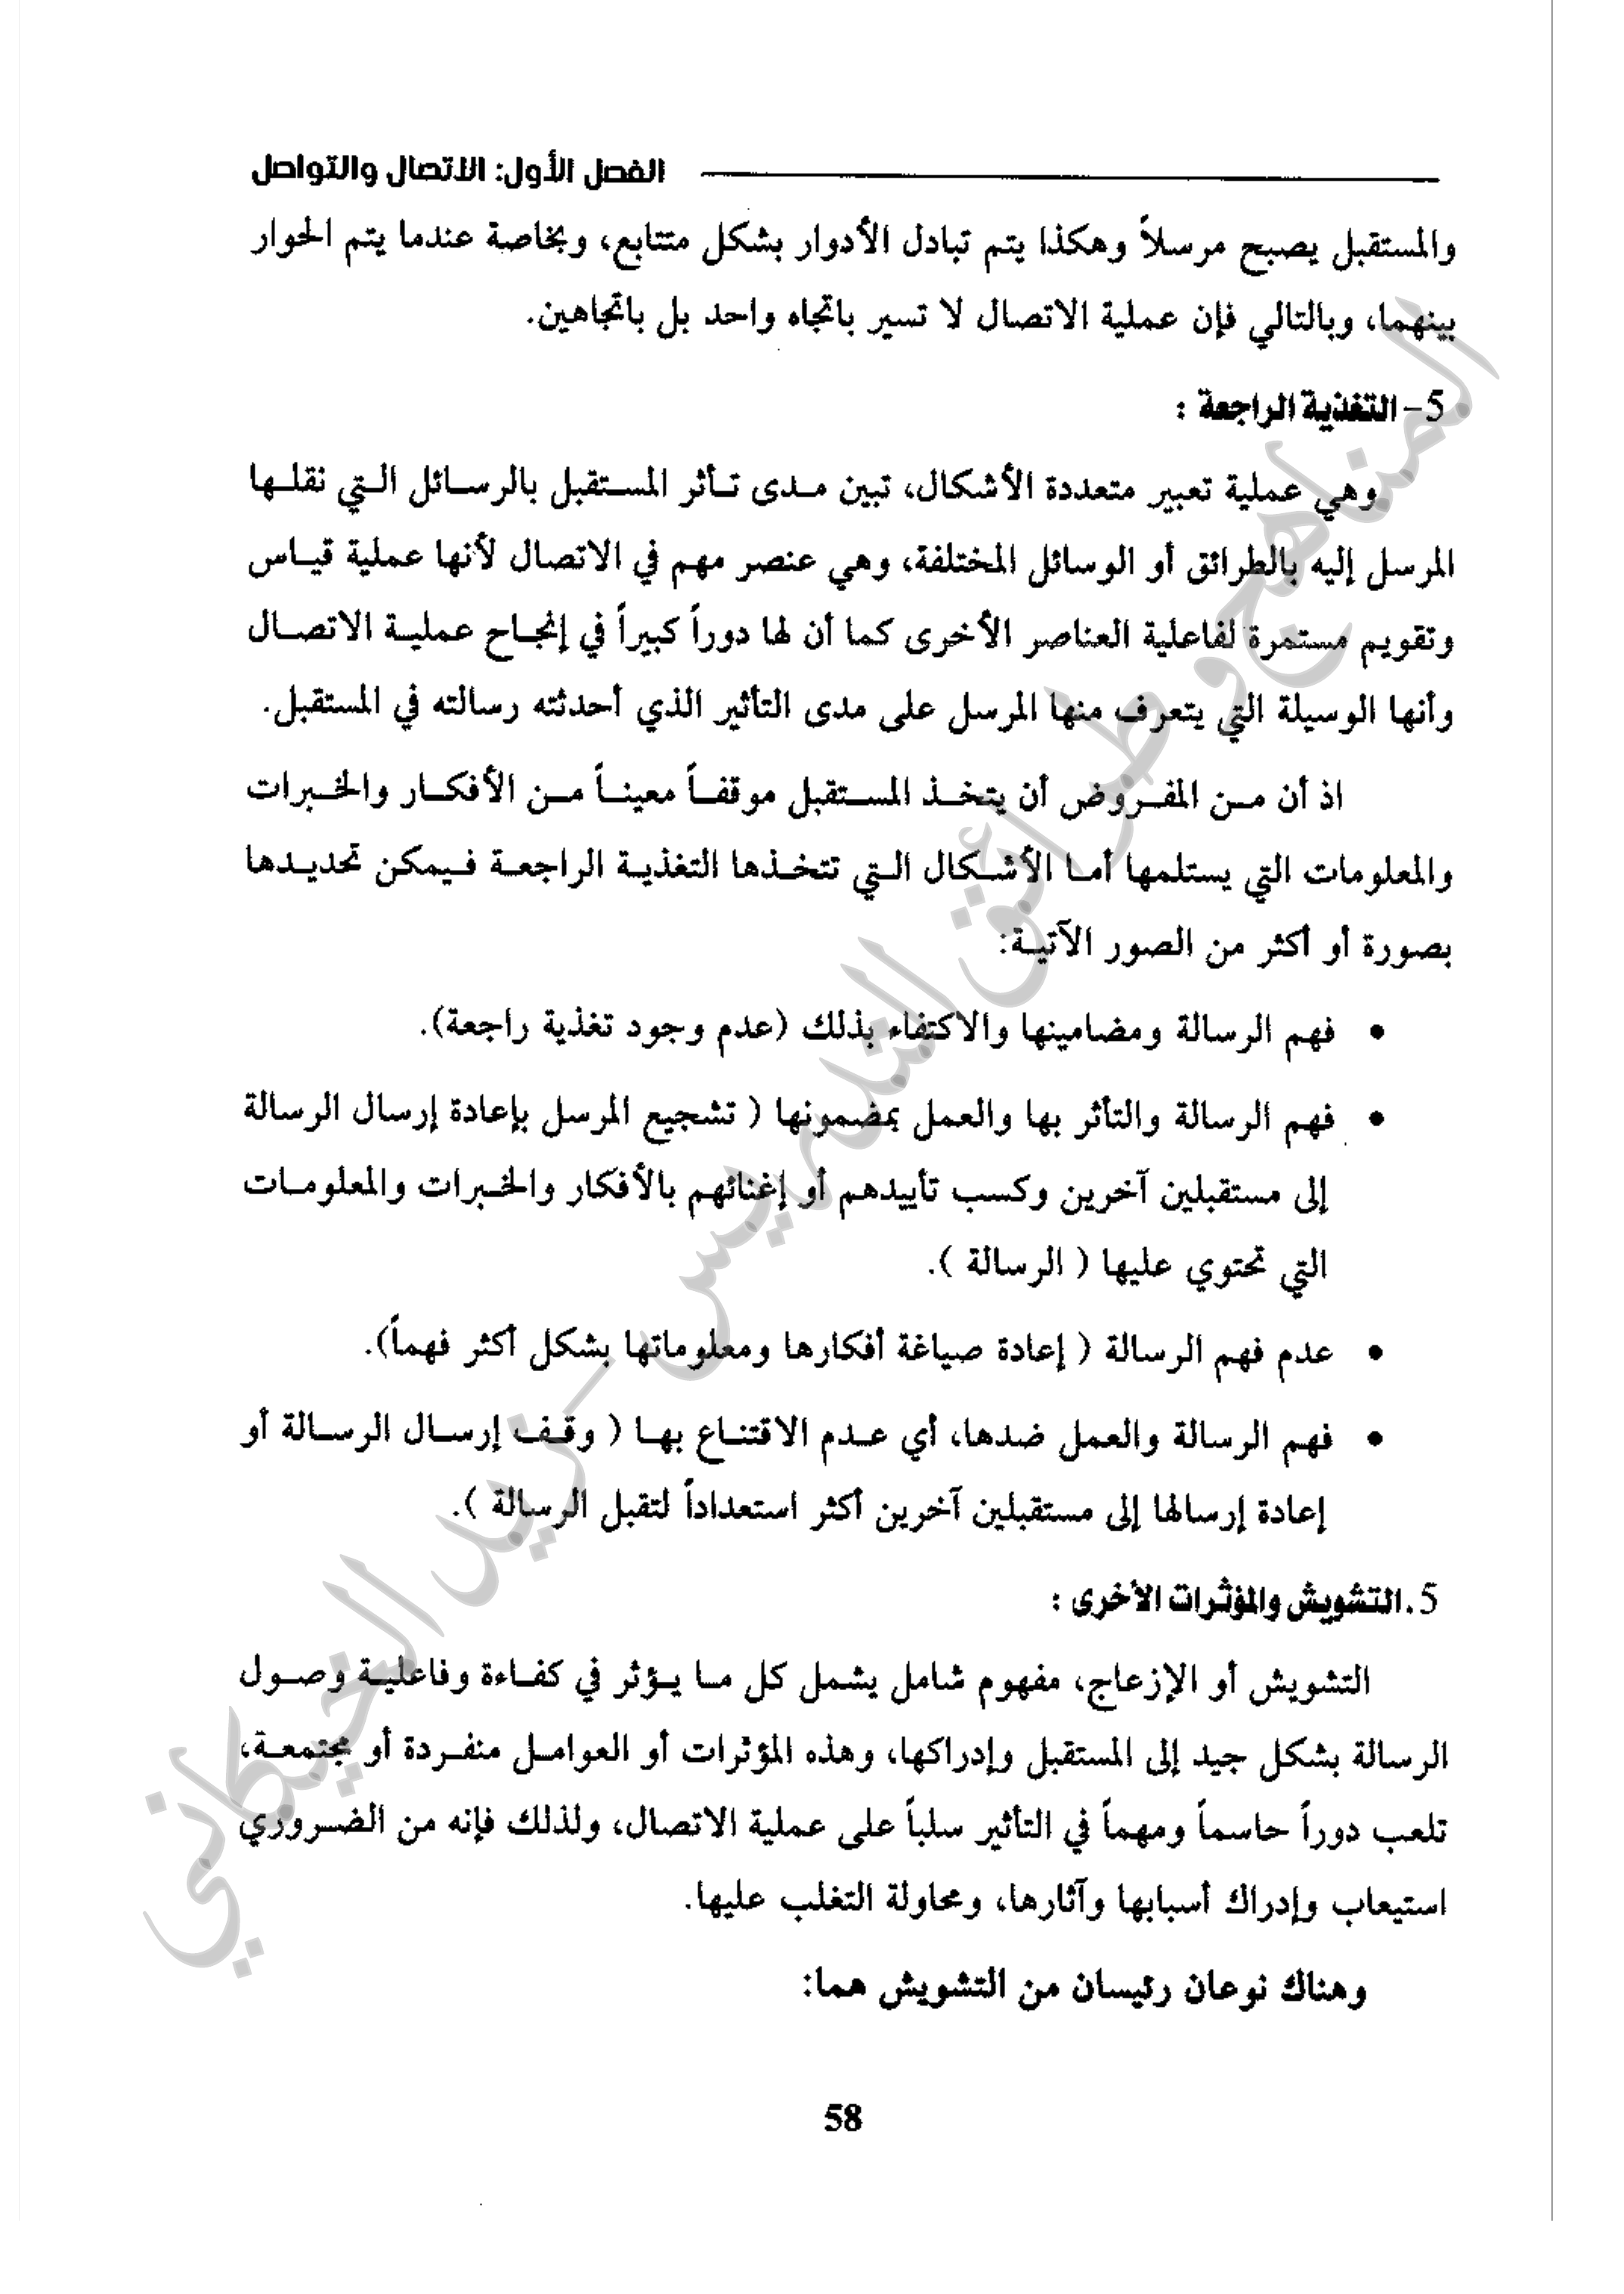 الفصل الأول: الاتصال والتواصل
والمستقبل يصبح مرسلاً وهكذا يتم تبادل الأدوار بشكل متتابع، وبخاصة عندما يتم الحوار
بينهما، وبالتالي فإن عملية الاتصال لا تسير باتجاه واحد بل باتجاهين.
5- التغذية الراجعة :
وهي عملية تعبير متعددة الأشكال، تبين مدى تأثر المستقبل بالرسائل التي نقلها
المرسل إليه بالطرائق أو الوسائل المختلفة، وهي عنصر مهم في الاتصال لأنها عملية قياس
وتقويم مستمرة لفاعلية العناصر الأخرى كما أن لها دوراً كبيراً في إنجاح عملية الاتصال
وأنها الوسيلة التي يتعرف منها المرسل على مدى التأثير الذي أحدثته رسالته في المستقبل.
اذ أن من المفروض أن يتخذ المستقبل موقفاً معيناً من الأفكار والخبرات
والمعلومات التي يستلمها أما الأشكال التي تتخذها التغذية الراجعة فيمكن تحديدها
بصورة أو أكثر من الصور الآتية:
• فهم الرسالة ومضامينها والاكتفاء بذلك (عدم وجود تغذية راجعة).
• فهم الرسالة والتأثر بها والعمل بمضمونها ( تشجيع المرسل بإعادة إرسال الرسالة
إلى مستقبلين آخرين وكسب تأييدهم أو إغنائهم بالأفكار والخبرات والمعلومات
التي تحتوي عليها ( الرسالة ).
• عدم فهم الرسالة ( إعادة صياغة أفكارها ومعلوماتها بشكل أكثر فهماً).
• فهم الرسالة والعمل ضدها، أي عدم الاقتناع بها ( وقف إرسال الرسالة أو
إعادة إرسالها إلى مستقبلين آخرين أكثر استعداداً لتقبل الرسالة ).
5. التشويش والمؤثرات الأخرى :
التشويش أو الإزعاج، مفهوم شامل يشمل كل ما يؤثر في كفاءة وفاعلية وصول
الرسالة بشكل جيد إلى المستقبل وإدراكها، وهذه المؤثرات أو العوامل منفردة أو مجتمعة،
تلعب دوراً حاسماً ومهماً في التأثير سلباً على عملية الاتصال، ولذلك فإنه من الضروري
استيعاب وإدراك أسبابها وآثارها، ومحاولة التغلب عليها.
وهناك نوعان رئيسان من التشويش هما:
58
المناهج وطرائق التدريس - زيد الخيكاني